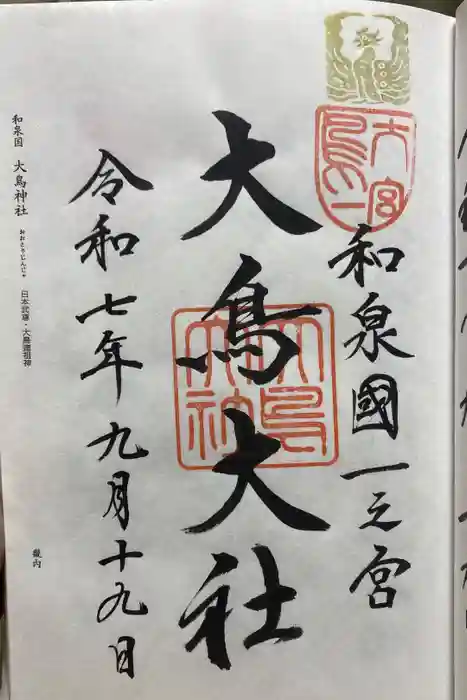 和泉國一之宮
大鳥大社
令和七年九月十九日
和泉国 大鳥神社 おおとりじんじゃ 日本武尊・大鳥連祖神
畿内